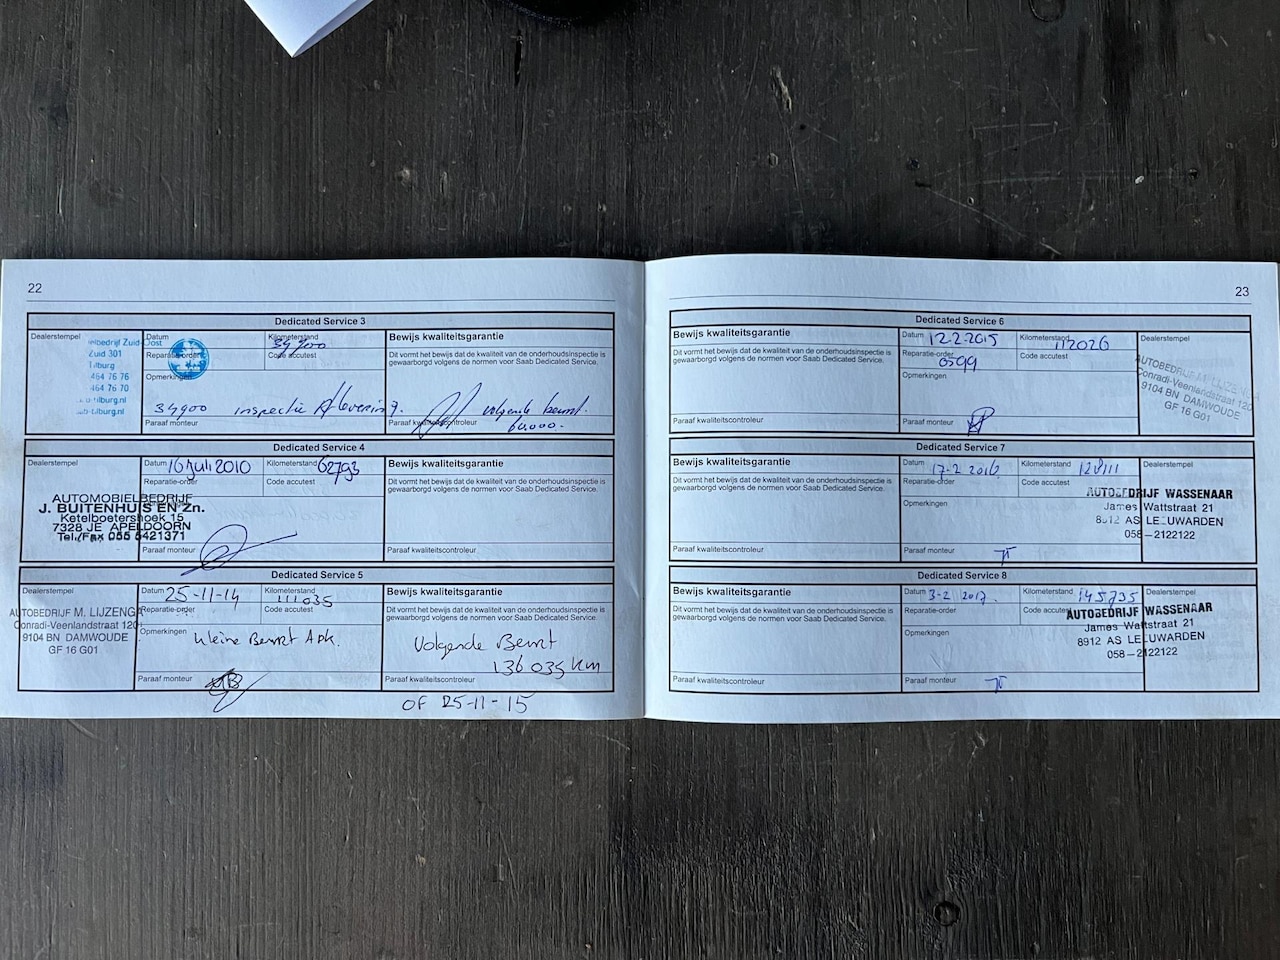 22
Dedicated Service 3
Dealerstempel
Datum
Kilometerstand
39900
Bewijs kwaliteitsgarantie
Zuid-Oost
Zuid 301
Tilburg
464 76 76
464 76 70
Reparatie-order
Code accutest
Dit vormt het bewijs dat de kwaliteit van de onderhoudsinspectie is
gewaarborgd volgens de normen voor Saab Dedicated Service.
Opmerkingen
39900 inspectie Aflevering.
volgende beurt.
60.000.
Paraaf monteur
Paraaf kwaliteitscontroleur
Dedicated Service 4
Dealerstempel
Datum 16 juli 2010
Kilometerstand 62793
Bewijs kwaliteitsgarantie
Reparatie-order
Code accutest
Dit vormt het bewijs dat de kwaliteit van de onderhoudsinspectie is
gewaarborgd volgens de normen voor Saab Dedicated Service.
AUTOMOBIELBEDRIJF
J. BUITENHUIS EN Zn.
Ketelboetershoek 15
7328 JE APELDOORN
Tel./Fax 055 5421371
Paraaf monteur
Paraaf kwaliteitscontroleur
Dedicated Service 5
Dealerstempel
Datum 25-11-14
Kilometerstand 111035
Bewijs kwaliteitsgarantie
Reparatie-order
Code accutest
Dit vormt het bewijs dat de kwaliteit van de onderhoudsinspectie is
gewaarborgd volgens de normen voor Saab Dedicated Service.
AUTOBEDRIJF M. LIJZENGA
Conradi-Veenlandstraat 120
9104 BN DAMWOUDE
GF 16 G01
Opmerkingen kleine Beurt Apk.
Volgende Beurt
136 035 km
Paraaf monteur
Paraaf kwaliteitscontroleur
OF 25-11-15
23
Dedicated Service 6
Bewijs kwaliteitsgarantie
Datum 12-2-2015
Kilometerstand 112026
Dealerstempel
Dit vormt het bewijs dat de kwaliteit van de onderhoudsinspectie is
gewaarborgd volgens de normen voor Saab Dedicated Service.
Reparatie-order 0599
Code accutest
Opmerkingen
AUTOBEDRIJF M. LIJZENGA
Conradi-Veenlandstraat 120
9104 BN DAMWOUDE
GF 16 G01
Paraaf kwaliteitscontroleur
Paraaf monteur
Dedicated Service 7
Bewijs kwaliteitsgarantie
Datum 17-2 2016
Kilometerstand 128111
Dealerstempel
Dit vormt het bewijs dat de kwaliteit van de onderhoudsinspectie is
gewaarborgd volgens de normen voor Saab Dedicated Service.
Reparatie-order
Code accutest
Opmerkingen
AUTOBEDRIJF WASSENAAR
James Wattstraat 21
8912 AS LEEUWARDEN
058-2122122
Paraaf kwaliteitscontroleur
Paraaf monteur
Dedicated Service 8
Bewijs kwaliteitsgarantie
Datum 3-2 2017.
Kilometerstand 145735
Dealerstempel
Dit vormt het bewijs dat de kwaliteit van de onderhoudsinspectie is
gewaarborgd volgens de normen voor Saab Dedicated Service.
Reparatie-order
Code accutest
Opmerkingen
AUTOBEDRIJF WASSENAAR
James Wattstraat 21
8912 AS LEEUWARDEN
058-2122122
Paraaf kwaliteitscontroleur
Paraaf monteur